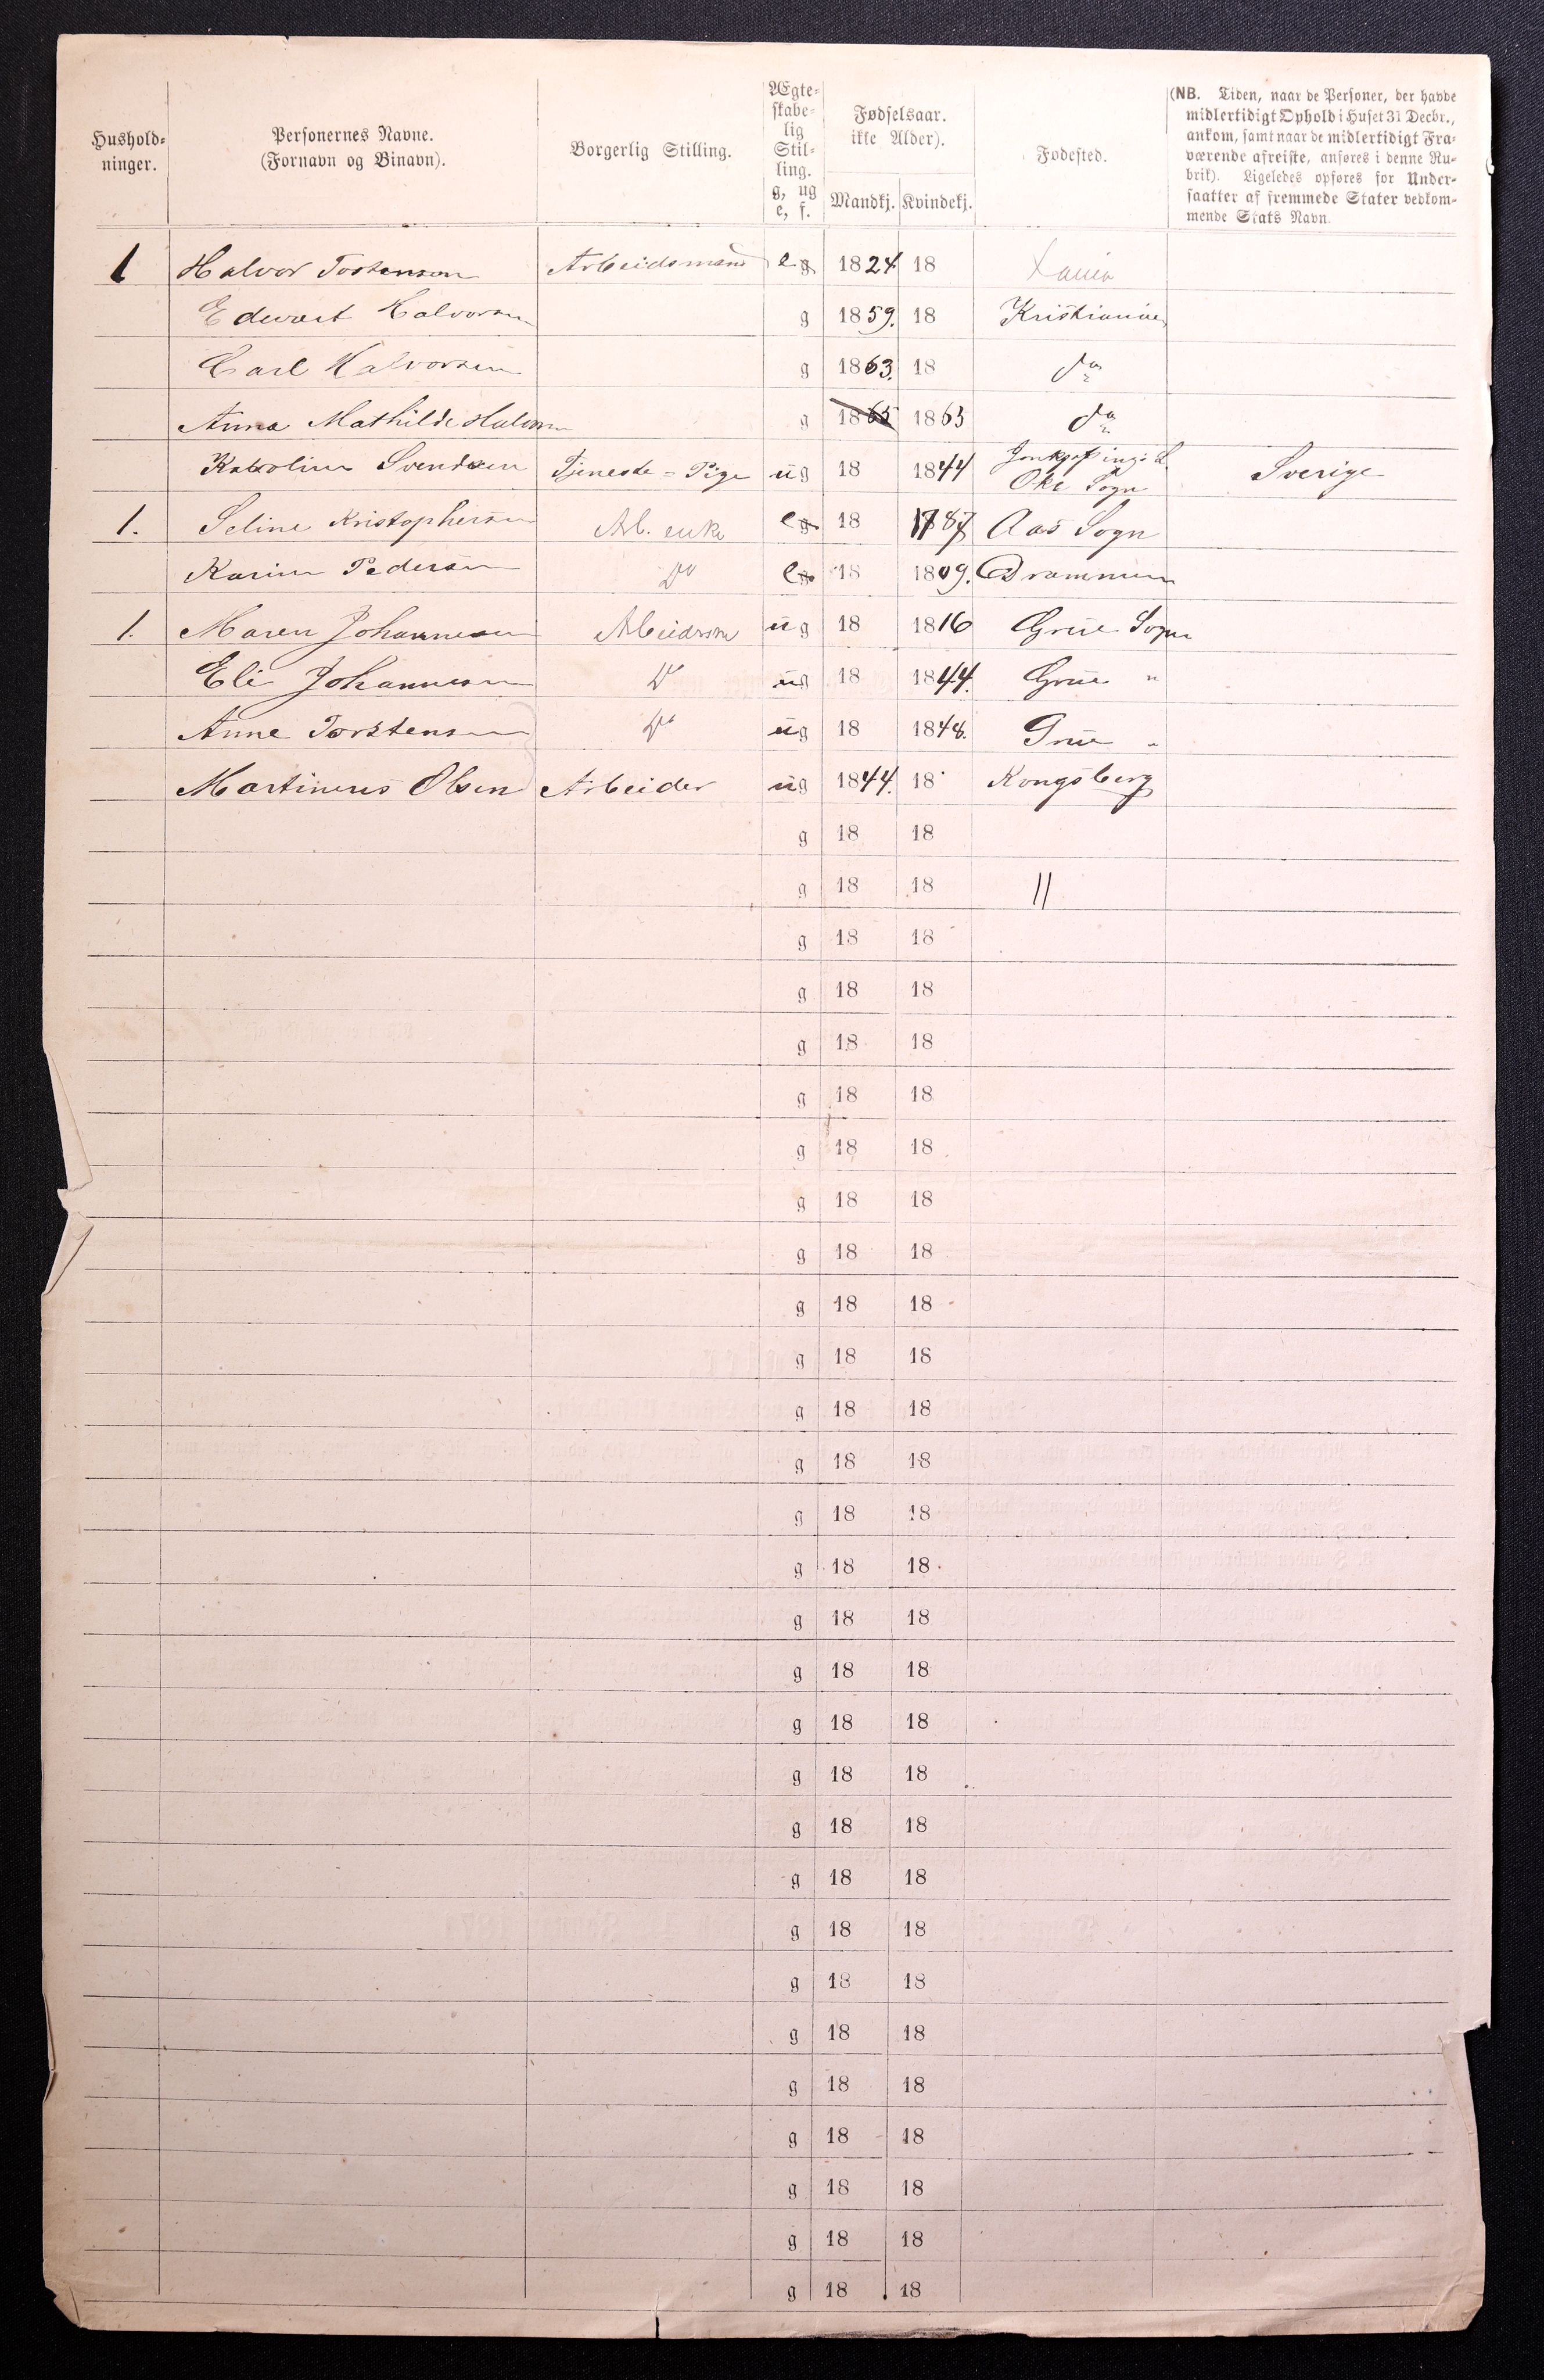 Hushold-
ninger.
Personernes Navne.
(Fornavn og Binavn).
Borgerlig Stilling.
Ægte-
skabe-
lig
Stil-
ling.
g, ug
e, f.
Fødselsaar.
ikke Alder).
Mandkj. Kvindekj.
Fødested.
(NB. Tiden, naar de Personer, der havde
midlertidigt Ophold i Huset 31 Decbr.,
ankom, samt naar de midlertidigt Fra-
værende afreiste, anføres i denne Ru-
brik). Ligeledes opføres for Under-
saatter af fremmede Stater vedkom-
mende Stats Navn.
1 Halvor Tostensen Arbeidsmand e g 1824 18 Xania
Edvart Halvorsen g 1859. 18 Kristiania
Carl Halvorsen g 1863. 18 do
Anna Mathilde Halvorsen g 1865 1863 do
Karoline Svendsen Tjeneste=Pige ug 18 1844 Jonkjøpings L. Sverige
Sogn
1. Seline Kristophersen Arb. enke e g 18 1787 Aas Sogn
Karine Pedersen Do e g 18 1809. Drammen
1. Maren Johannesen ug 18 1816 Grue Sogn
Eli Johannesen Do ug 18 1844. Grue "
Anne Torstensen Do ug 18 1848. Grue "
Martinius Olsen Arbeider ug 1844. 18 Kongsberg
g 18 18
g 18 18 //
g 18 18
g 18 18
g 18 18
g 18 18
g 18 18
g 18 18
g 18 18
g 18 18
g 18 18
g 18 18
g 18 18
g 18 18
g 18 18
g 18 18
g 18 18
g 18 18
g 18 18
g 18 18
g 18 18
g 18 18
g 18 18
g 18 18
g 18 18
g 18 18
g 18 18
g 18 18
g 18 18